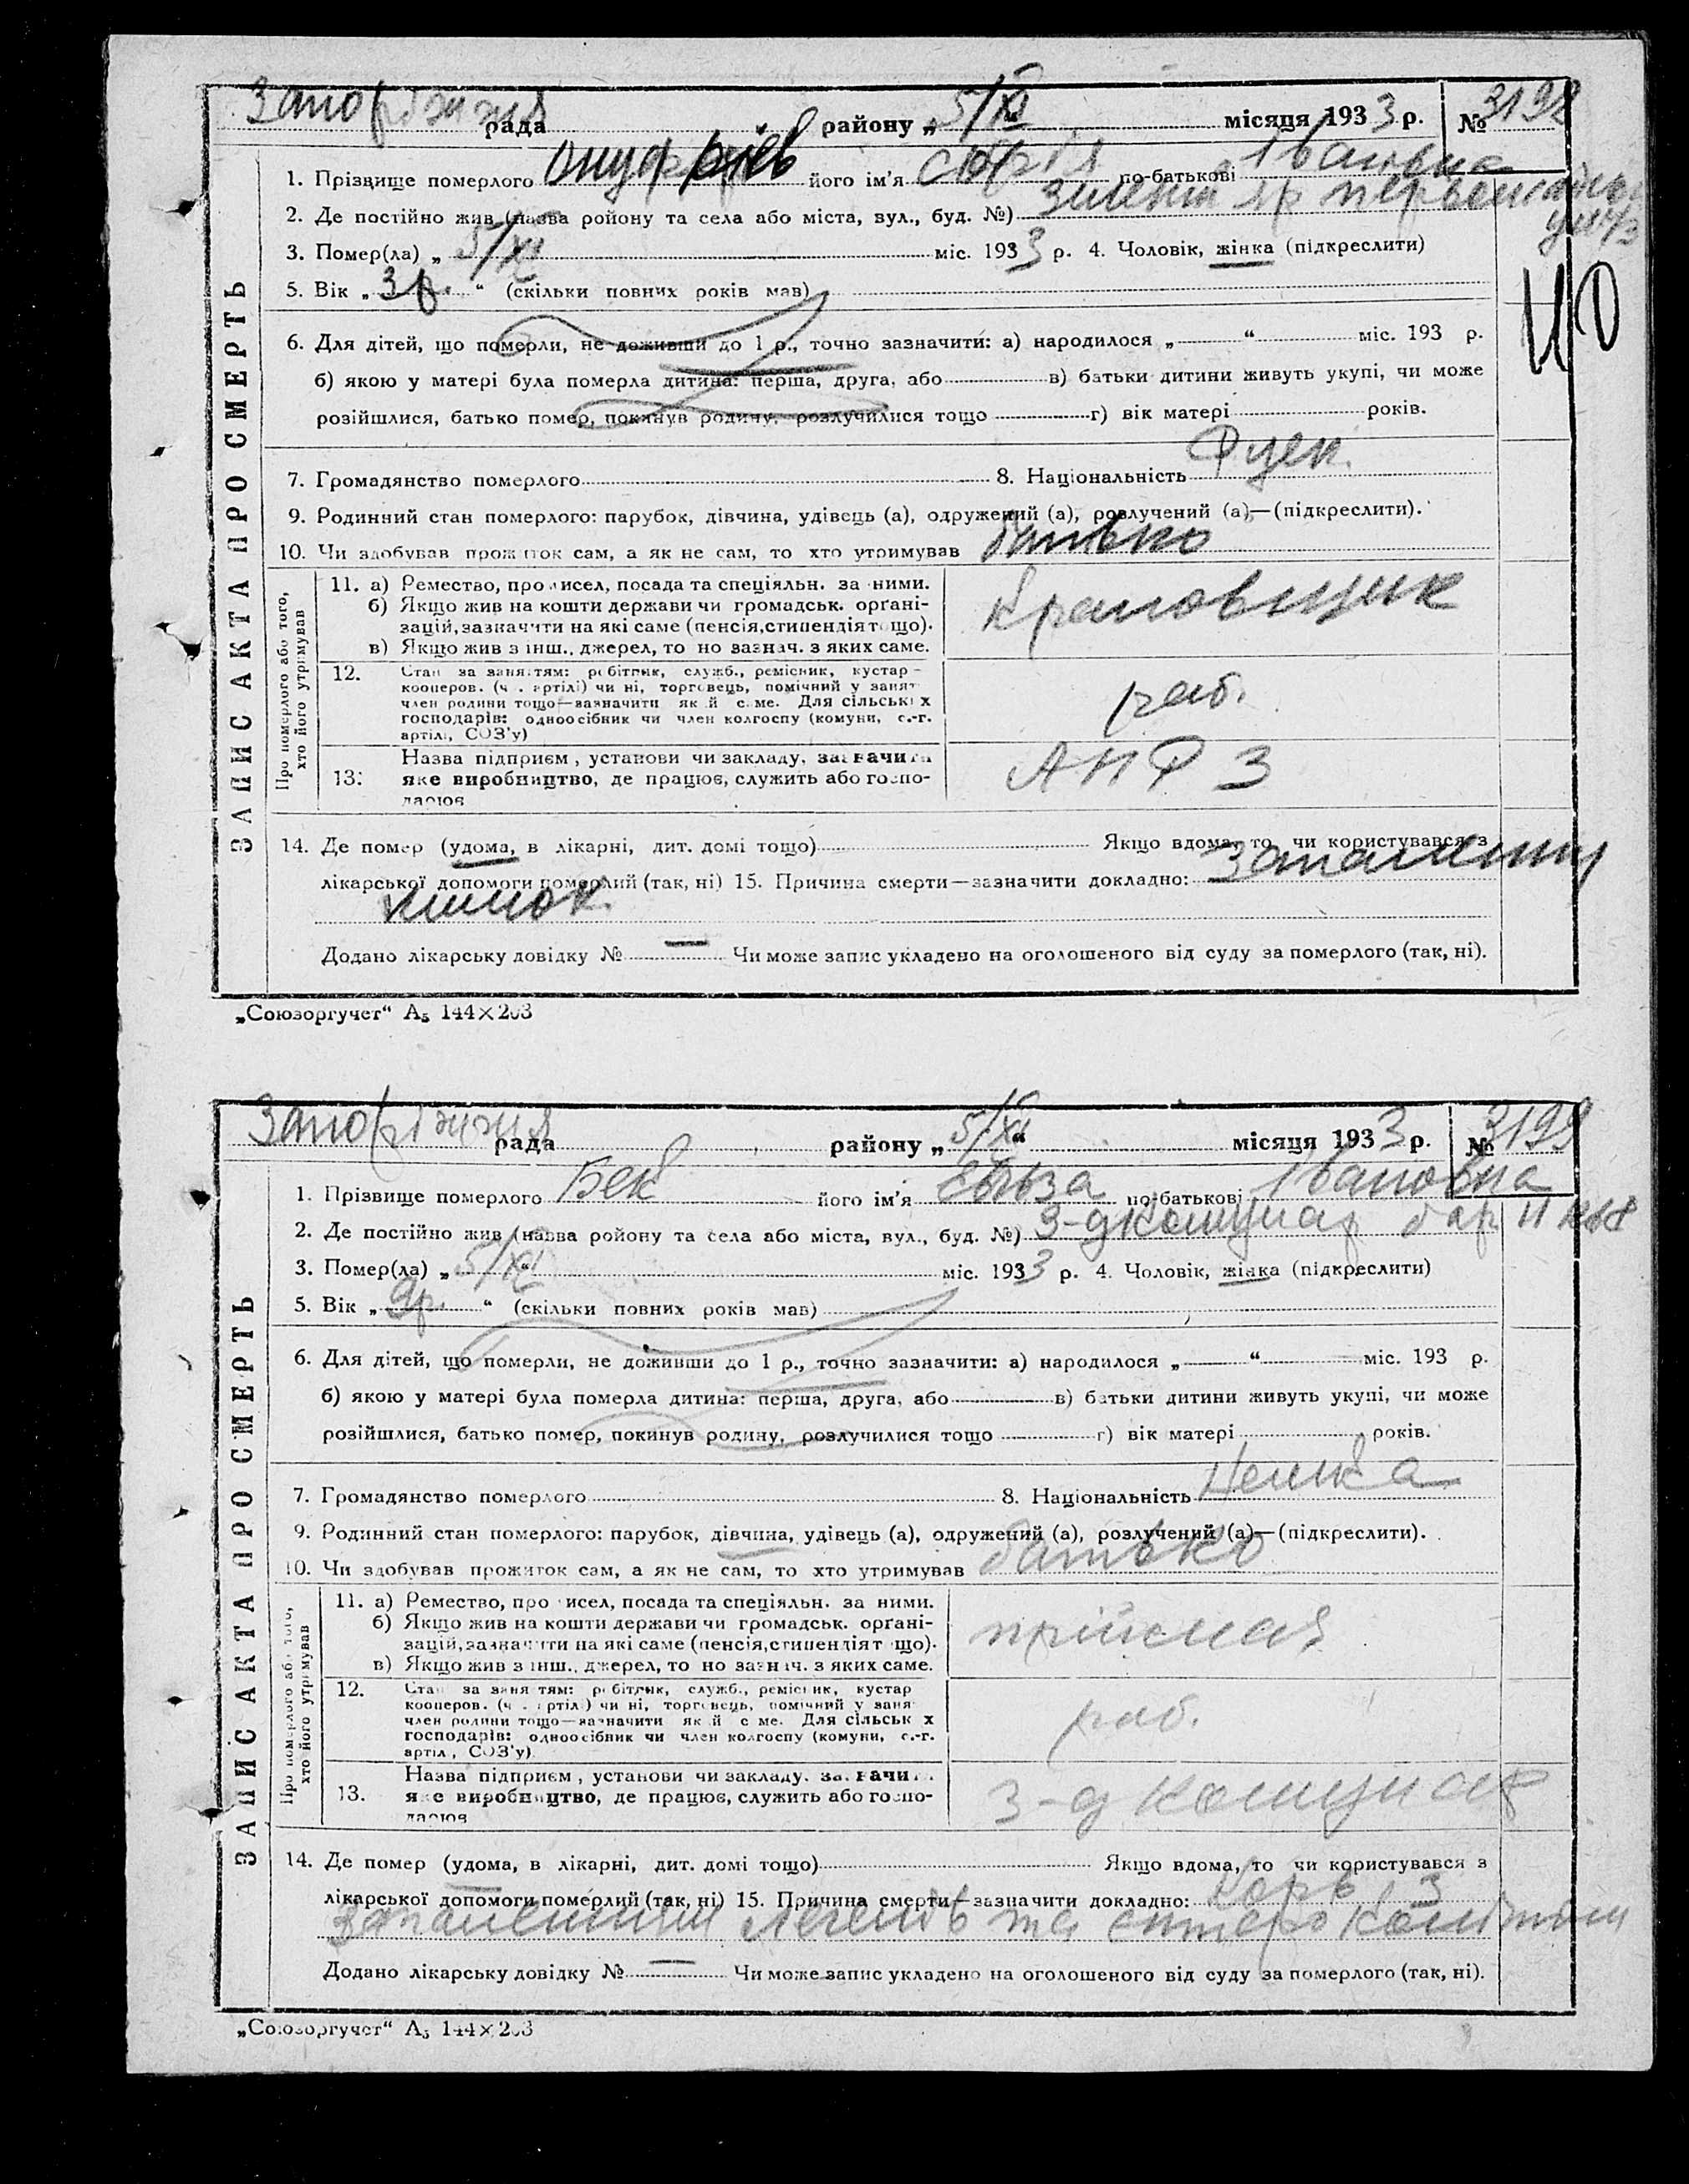 Запоріжжя рада району „ 5/XI “ місяця 1933 р. № 3198
ЗАПИС АКТА ПРО СМЕРТЬ
1. Прізвище померлого Онуфріев його ім'я по-батькові
2. Де постійно жив (назва ройону та села або міста, вул., буд. №)
3. Помер(ла) „ 5/XI міс. 1933 р. 4. Чоловік, жінка (підкреслити)
5. Вік „ 3 р. “ (скільки повних років мав)
6. Для дітей, що померли, не доживши до 1 р., точно зазначити: а) народилося „ “ міс. 193 р.
б) якою у матері була померла дитина: перша, друга, або в) батьки дитини живуть укупі, чи може
розійшлися, батько помер, покинув родину, розлучилися тощо г) вік матері років.
7. Громадянство померлого 8. Національність
9. Родинний стан померлого: парубок, дівчина, удівець (а), одружений (а), розлучений (а)—(підкреслити).
10. Чи здобував прожиток сам, а як не сам, то хто утримував батько
Про померлого або того, хто його утримував
11. а) Ремество, промисел, посада та спеціяльн. за ними.
б) Якщо жив на кошти держави чи громадськ. орґані-
зацій, зазначити на які саме (пенсія, стипендія тощо).
в) Якщо жив з інш. джерел, то но зазнач. з яких саме.
крановщик
12. Стан за заняттям: робітник, служб., ремісник, кустар
кооперов. (ч . артілі) чи ні, торговець, помічний у занят
член родини тощо—зазначити який саме. Для сільських
господарів: одноосібник чи член колгоспу (комуни, с.-г.
артілі, СОЗ'у)
раб.
13. Назва підприєм , установи чи закладу, зазначити
яке виробництво, де працює, служить або госпо-
дарює
14. Де помер (удома, в лікарні, дит. домі тощо) Якщо вдома, то чи користувався з
лікарської допомоги померлий (так, ні) 15. Причина смерти—зазначити докладно: Запалення
кишок
Додано лікарську довідку № — Чи може запис укладено на оголошеного від суду за померлого (так, ні).
„Союзоргучет“ А5 144×203
Запоріжжя рада району „ 5/XI “ місяця 1933 р. № 3199
ЗАПИС АКТА ПРО СМЕРТЬ
1. Прізвище померлого Бек його ім'я по-батькові Івановна
2. Де постійно жив (назва ройону та села або міста, вул., буд. №) З-д Комунар бар 11 кв 8
3. Помер(ла) „ 5/XI “ міс. 1933 р. 4. Чоловік, жінка (підкреслити)
5. Вік „ “ (скільки повних років мав)
6. Для дітей, що померли, не доживши до 1 р., точно зазначити: а) народилося „ “ міс. 193 р.
б) якою у матері була померла дитина: перша, друга, або в) батьки дитини живуть укупі, чи може
розійшлися, батько помер, покинув родину, розлучилися тощо г) вік матері років.
7. Громадянство померлого 8. Національність Немка
9. Родинний стан померлого: парубок, дівчина, удівець (а), одружений (а), розлучений (а)—(підкреслити).
10. Чи здобував прожиток сам, а як не сам, то хто утримував батько
Про померлого або того, хто його утримував
11. а) Ремество, промисел, посада та спеціяльн. за ними.
б) Якщо жив на кошти держави чи громадськ. орґані-
зацій, зазначити на які саме (пенсія, стипендія тощо).
в) Якщо жив з інш. джерел, то но зазнач. з яких саме.
12. Стан за заняттям: робітник, служб., ремісник, кустар
кооперов. (ч . артілі) чи ні, торговець, помічний у заня
член родини тощо—зазначити який саме. Для сільських
господарів: одноосібник чи член колгоспу (комуни, с.-г.
артіл , СОЗ'у)
раб.
13. Назва підприєм , установи чи закладу, зазначити
яке виробництво, де працює, служить або госпо-
дарює
З-д Комунар
14. Де помер (удома, в лікарні, дит. домі тощо) Якщо вдома, то чи користувався з
лікарської допомоги померлий (так, ні) 15. Причина смерти—зазначити докладно: Корь з
запаленням легенів та ентероколітом
Додано лікарську довідку № — Чи може запис укладено на оголошеного від суду за померлого (так, ні).
„Союзоргучет“ А5 144×203